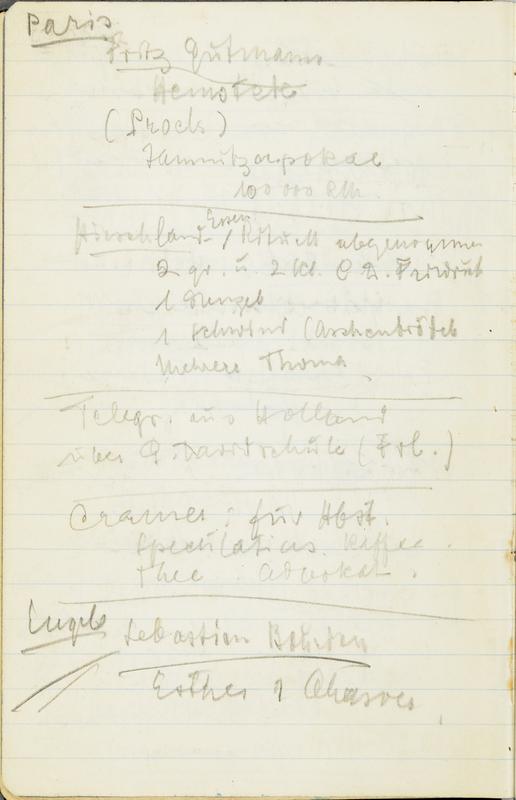 Paris
Fritz Gutmann
Hemstede
(Proels)
Jamnitzerpokal
100 000 RM.
Hirschland-Essen / Rituell abgenommen
2 gr. u. 2 kl. C. D. Friedrich
1 Stengel
1 Schwind (Aschenbrödel
Mehrere Thoma
Telegr. aus Holland
über Davidschule (Frl.)
Cramer: für Hbst.
Speculatius. Kaffee.
Thee. Advokat.
Engels Sebastien Bourdon
Esther Ahasver